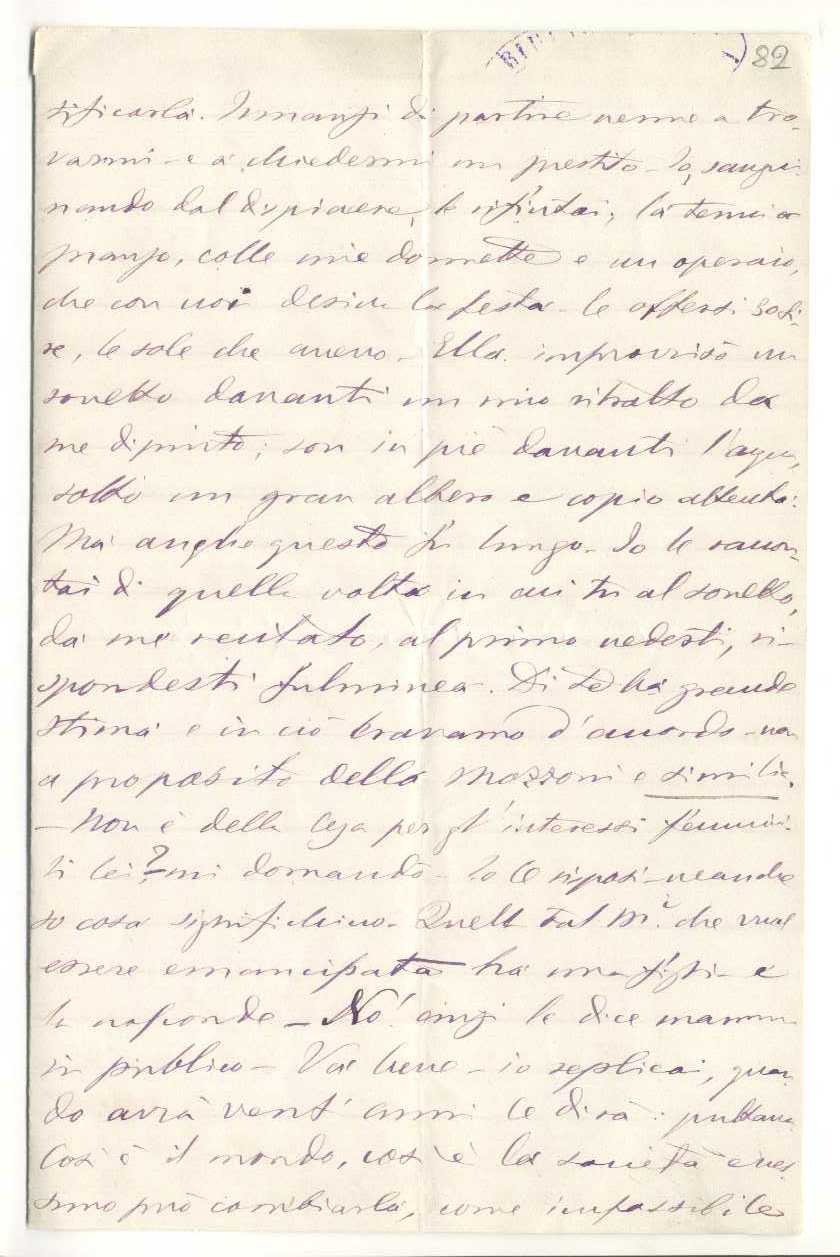 82
sificarla. Innanzi di partire venne a tro-
varmi - e a chiedermi un prestito - Io, sangui-
nando dal dispiacere, le rifiutai; la tenni a
pranzo, colle mie donnette e un operaio,
che con noi desina la festa - le offersi 30 li-
re, le sole che avevo - Ella improvvisò un
sonetto davanti un mio ritratto da
me dipinto; son in piè davanti l'acqua,
sotto un gran albero e copio attenta:
Ma anche questo fu lungo - Io le raccon-
tai di quella volta in cui tu al sonetto,
da me recitato, al primo vederti, ri-
spondesti fulminea. Di te ha grande
stima e in ciò eravamo d'accordo - non
a proposito della Mozzoni e similia.
- Non è della Lega per gl'interessi femmini-
li lei? mi domandò - Io le risposi - neanche
so cosa significhino - Quella tal M.a che vuol
essere emancipata ha una figlia e
la nasconde - No! anzi le dice mamma
in pubblico - Va bene - io replicai, quan-
do avrà vent'anni le dirà: puttana
Così è il mondo, così è la società e nes-
suno può cambiarla, come impossibile